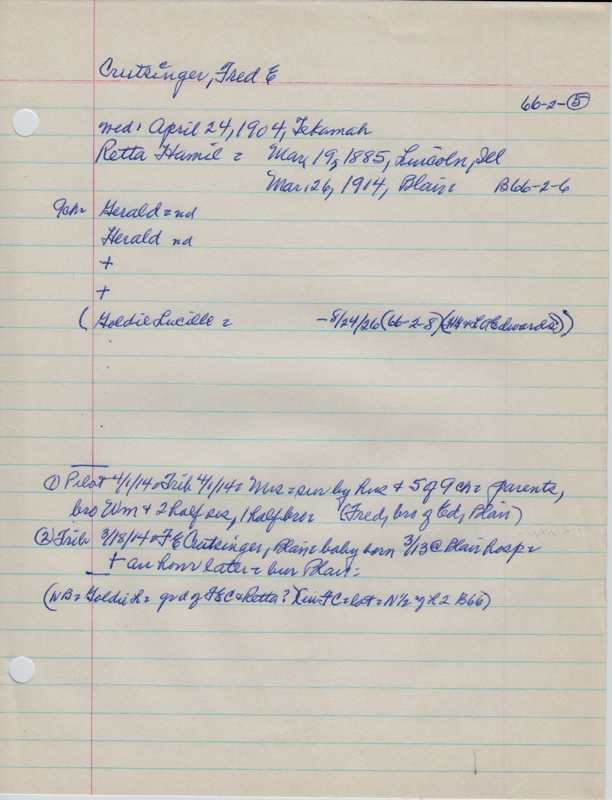 Crutsinger, Fred E
66-2-⑤
med: April 24, 1904, Tekamah
Retta Hamil = Mar, 19, 1885, Lincoln, Ill
Mar. 26, 1914, Blair= B66-2-6
9ch= Gerald = nd
Herald nd
+
+
(Goldie Lucille = -8/24/26 (66-2-8) (Edwards))
① Pilot 4/1/14 = Trib 4/1/14 = Mrs = sur by hus + 5 of 9 ch = parents,
bro Wm + 2 half sis, 1 half bro = (Fred, bro of Ed, Blair)
② Trib 3/18/14 = F E Crutsinger, Blair = baby born 3/13 @ Blair hosp =
+ an hour later = bur Blair =
(NB = Goldie L = grd of FEC & Retta? (in FC = lot = N½ of L2 B66)